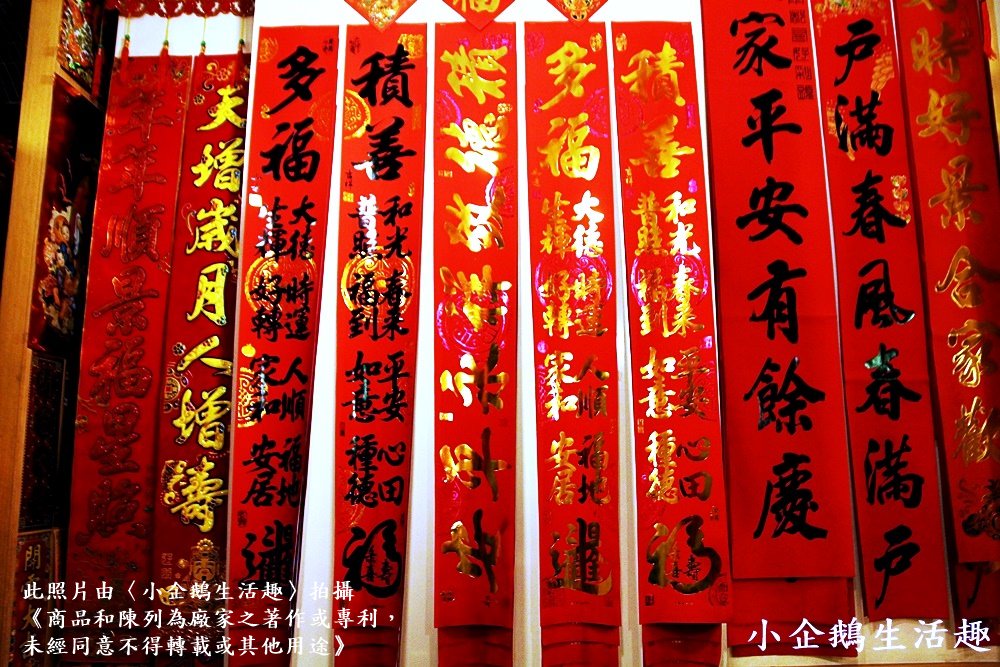 時好景合家歡
戶滿春風春滿戶
家平安有餘慶
積善
和光普照
春來福到
平安如意
心田種德
福
多福
大德生輝
時運好轉
人順家和
福地安居
積善
和光普照
春來福到
平安如意
心田種德
福
多福
大德生輝
時運好轉
人順家和
福地安居
天增歲月人增壽
年年順景福星臨
開
此照片由〈小企鵝生活趣〉拍攝
《商品和陳列為廠家之著作或專利，
未經同意不得轉載或其他用途》
小企鵝生活趣